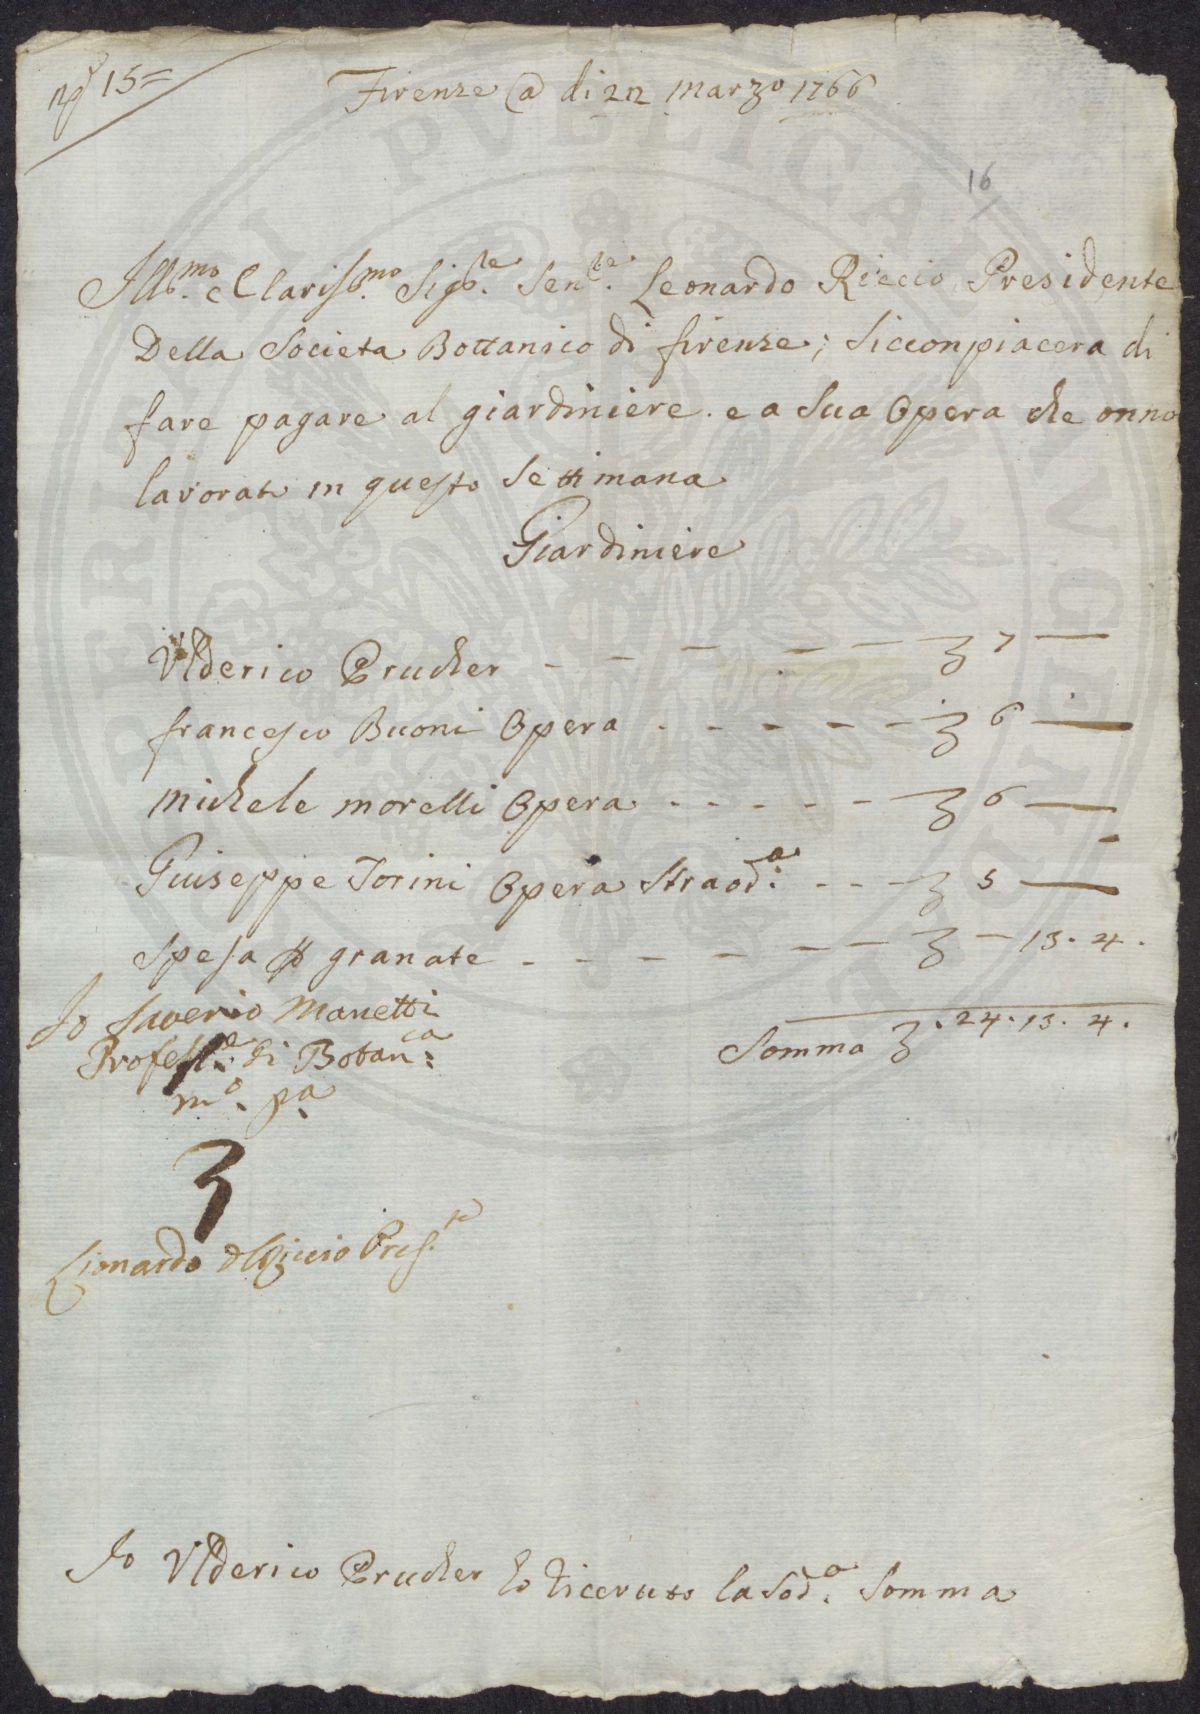 nº 15=
Firenze @ di 22 Marzo 1766
16
Illmo. Clarismo. Sigre. Senre. Leonardo Riccio Presidente
Della Societa Bottanico di firenze; Siccompiacera di
fare pagare al giardiniere. e a Sua Opera che onno
lavorato in questo Settimana
Giardiniere
Ulderico Prucher - - - - - 3 7 —
francesco Buoni Opera - - - - - 3 6 —
Michele morelli Opera - - - - - 3 6 —
Guiseppe Torini Opera Straoda: - - - 3 5 —
Spesa p granate - - - - - - 3 — 13. 4.
Somma 3. 24. 13. 4.
Io Saverio Manetti
Profesre. di Botanca:
mo. pa.
3
Lionardo del Riccio Preste
Io Ulderico Prucher ho Riceuto la Soda. Somma